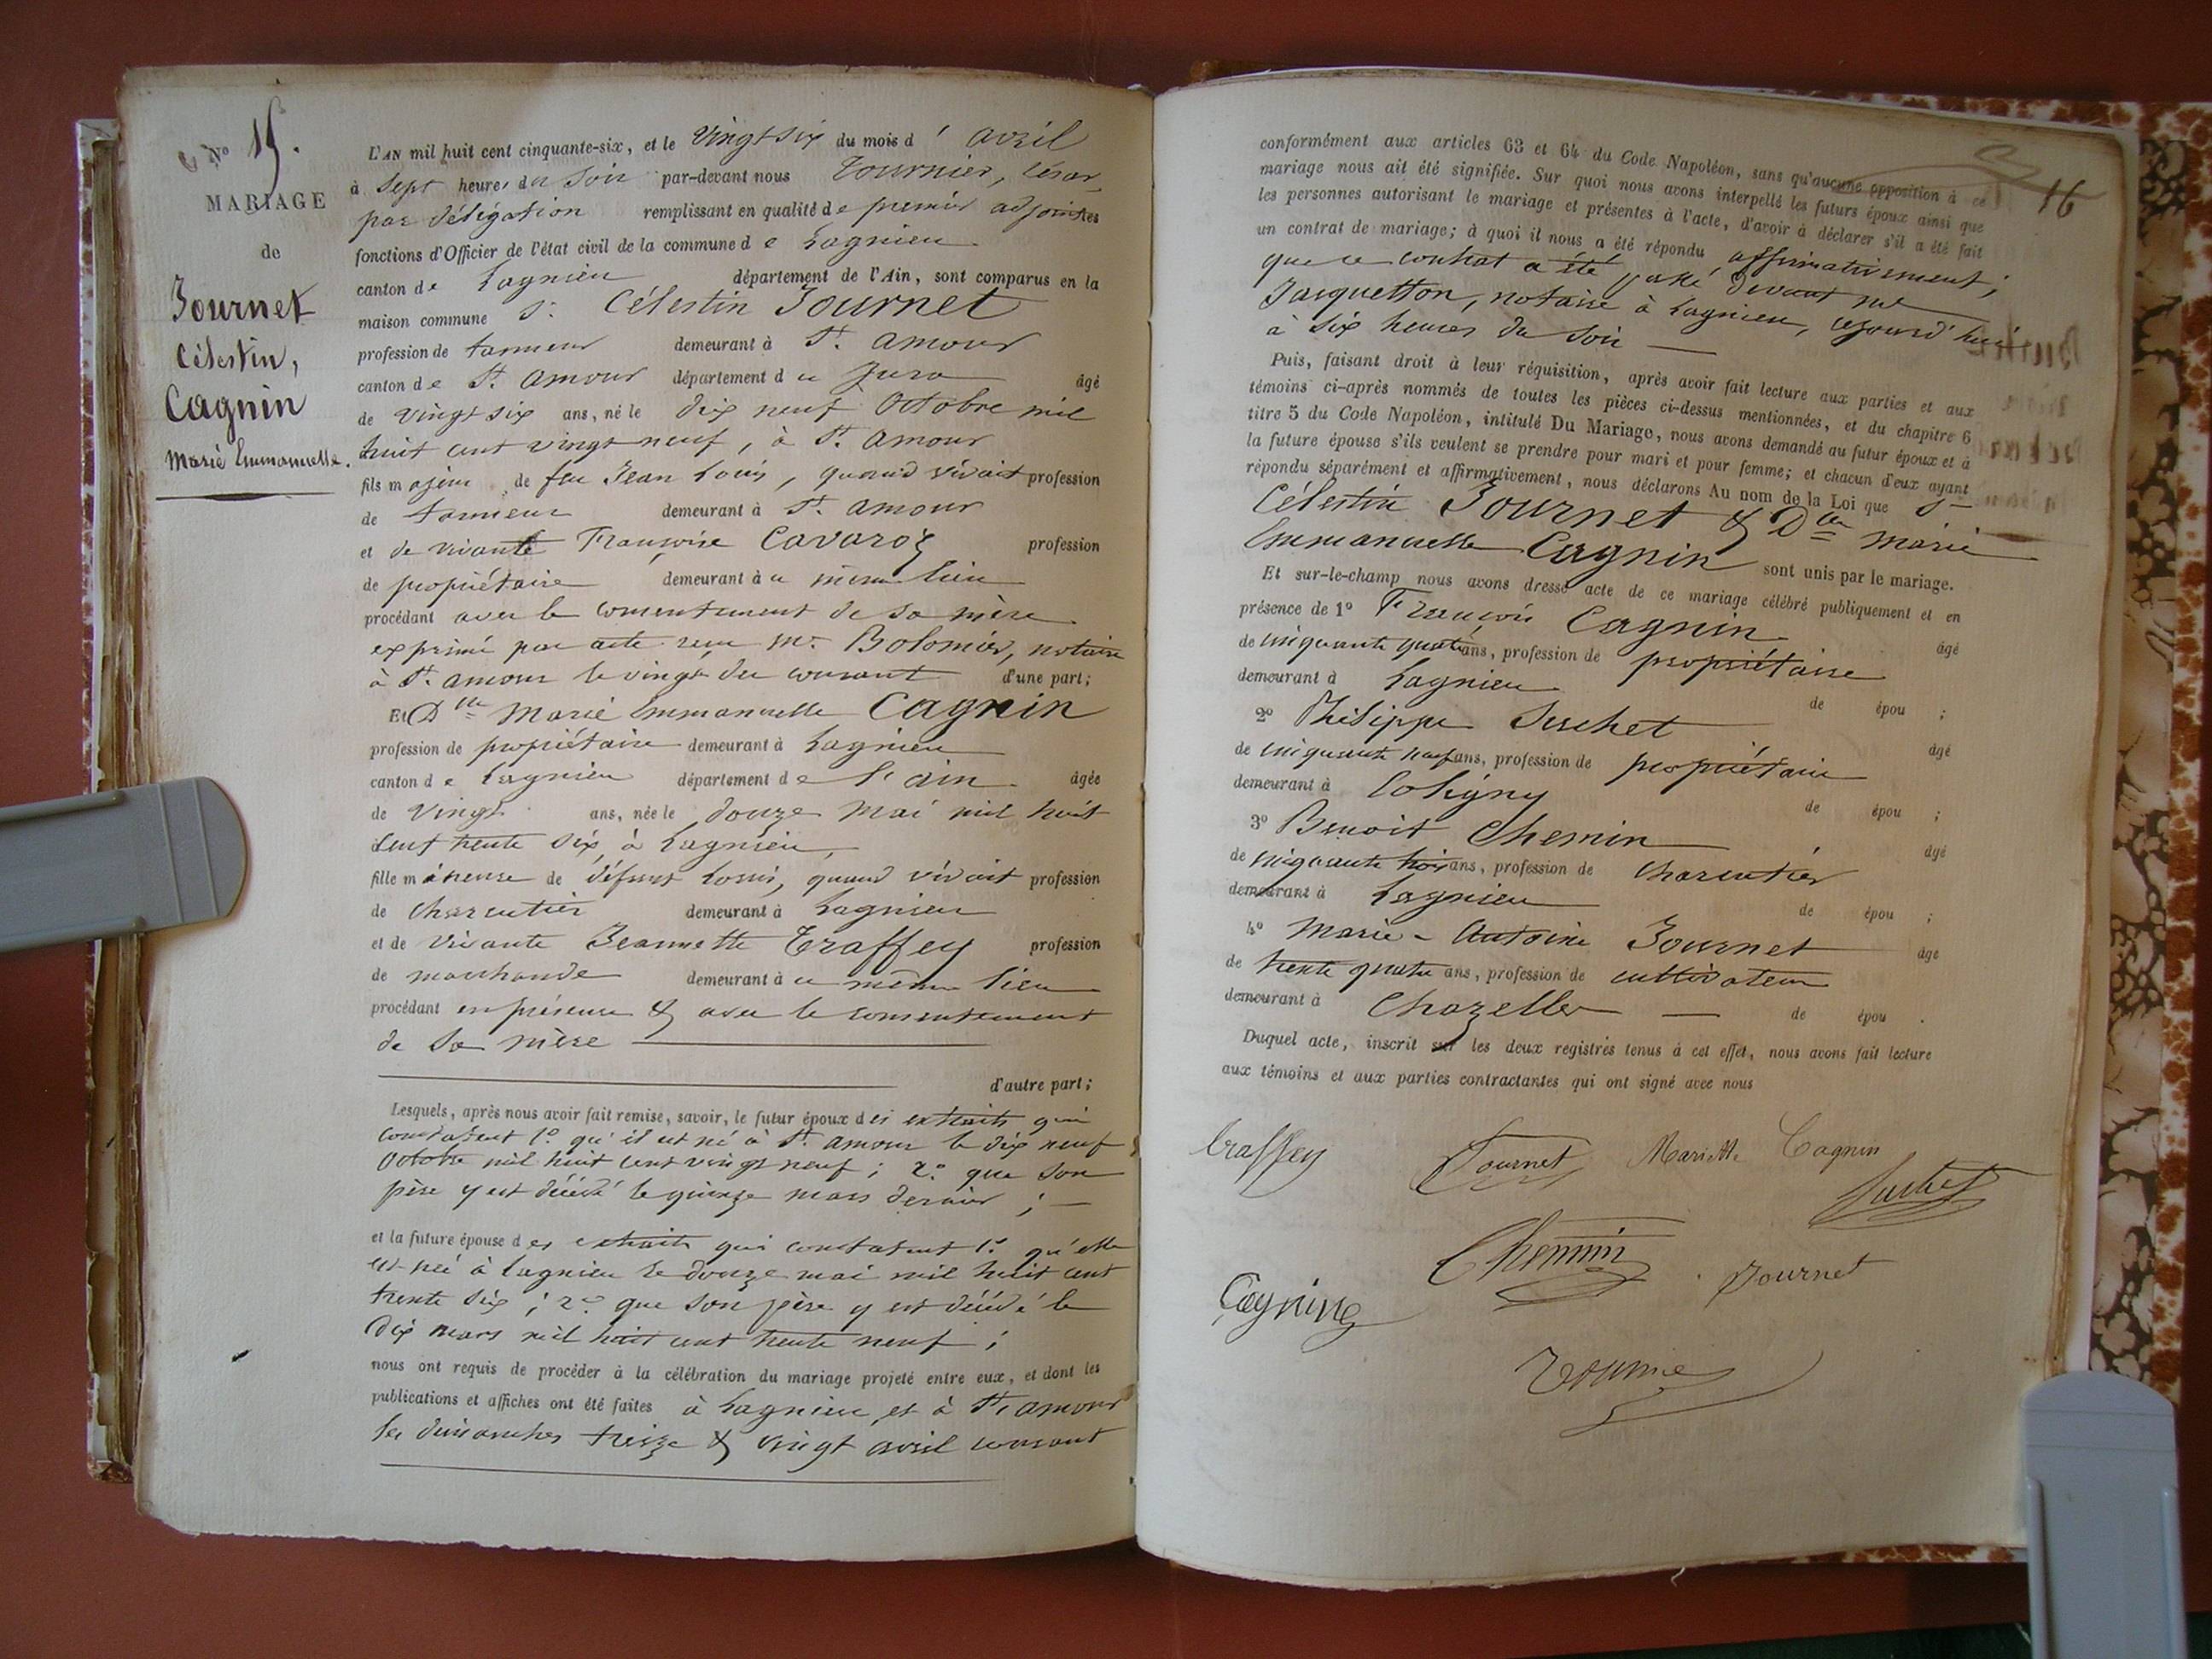 No 15.
MARIAGE
de
Journet
Célestin,
Cagnin
Marie Emmanuelle.
L'AN mil huit cent cinquante-six, et le vingt six du mois d' avril
à sept heures du soir par-devant nous Tournier, César,
par délégation remplissant en qualité de premier adjoint les
fonctions d'Officier de l'état civil de la commune de Lagnieu
canton de Lagnieu département de l'Ain, sont comparus en la
maison commune Sr. Célestin Journet
profession de tanneur demeurant à St. Amour
canton de St. Amour département du Jura âgé
de vingt six ans, né le dix neuf Octobre mil
huit cent vingt neuf, à St. Amour
fils majeur de feu Jean Louis, quand vivait profession
de tanneur demeurant à St. Amour
et de vivante Françoise Cavaroz profession
de propriétaire demeurant à ce même lieu
procédant avec le consentement de sa mère
exprimé par acte reçu Me. Bolomier, notaire
à St. Amour le vingt du courant d'une part;
Et Dlle Marie Emmanuelle Cagnin
profession de propriétaire demeurant à Lagnieu
canton de Lagnieu département de l'Ain âgée
de vingt ans, née le douze mai mil huit
cent trente six, à Lagnieu,
fille mineure de défunt Louis, quand vivait profession
de charcutier demeurant à Lagnieu
et de vivante Jeannette Traffey profession
de marchande demeurant à ce même lieu
procédant en présence & avec le consentement
de sa mère
d'autre part;
Lesquels, après nous avoir fait remise, savoir, le futur époux des extraits qui
constatent 1o. qu'il est né à St. Amour le dix neuf
Octobre mil huit cent vingt neuf; 2o. que son
père y est décédé le quinze mars dernier;
et la future épouse des extraits qui constatent 1o. qu'elle
est née à Lagnieu le douze mai mil huit cent
trente six; 2o. que son père y est décédé le
dix mars mil huit cent trente neuf;
nous ont requis de procéder à la célébration du mariage projeté entre eux, et dont les
publications et affiches ont été faites à Lagnieu, et à St. Amour
les dimanches treize & vingt avril courant
16
conformément aux articles 63 et 64 du Code Napoléon, sans qu'aucune opposition à ce
mariage nous ait été signifiée. Sur quoi nous avons interpellé les futurs époux ainsi que
les personnes autorisant le mariage et présentes à l'acte, d'avoir à déclarer s'il a été fait
un contrat de mariage; à quoi il nous a été répondu affirmativement;
que ce contrat a été passé devant Me
Jacquetton, notaire à Lagnieu, cejourd'hui
à six heures du soir
Puis, faisant droit à leur réquisition, après avoir fait lecture aux parties et aux
témoins ci-après nommés de toutes les pièces ci-dessus mentionnées, et du chapitre 6
titre 5 du Code Napoléon, intitulé Du Mariage, nous avons demandé au futur époux et à
la future épouse s'ils veulent se prendre pour mari et pour femme; et chacun d'eux ayant
répondu séparément et affirmativement, nous déclarons Au nom de la Loi que Sr
Célestin Journet & Dlle Marie
Emmanuelle Cagnin sont unis par le mariage.
Et sur-le-champ nous avons dressé acte de ce mariage célébré publiquement et en
présence de 1o François Cagnin âgé
de cinquante quatre ans, profession de propriétaire
demeurant à Lagnieu de épou ;
2o Philippe Suchet âgé
de cinquante neuf ans, profession de propriétaire
demeurant à Coligny de épou ;
3o Benoit Chemin âgé
de cinquante trois ans, profession de charcutier
demeurant à Lagnieu de épou ;
4o Marie-Antoine Journet âgé
de trente quatre ans, profession de cultivateur
demeurant à Chazelles de épou .
Duquel acte, inscrit sur les deux registres tenus à cet effet, nous avons fait lecture
aux témoins et aux parties contractantes qui ont signé avec nous
Traffey Journet Mariette Cagnin
Suchet
Chemin Journet
Cagnin
Tournier